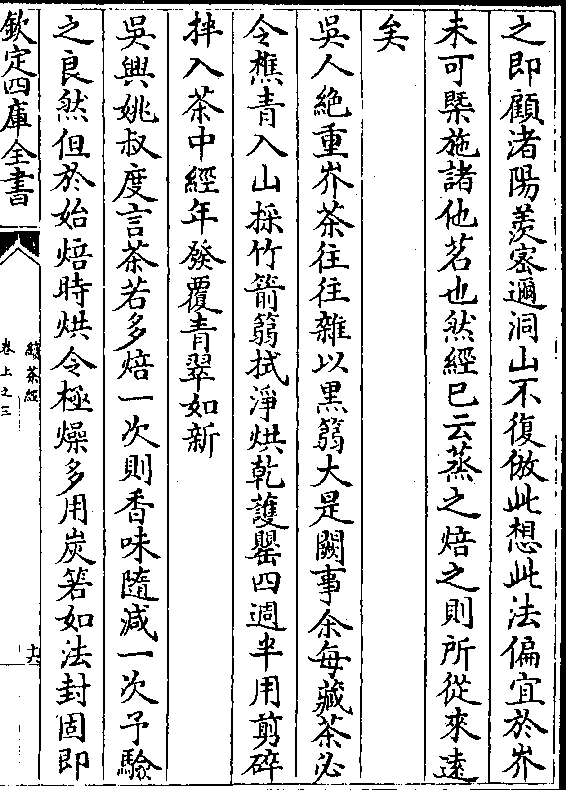 之即顧渚陽羨密邇洞山不復倣此想此法偏宜於岕
未可槩施諸他茗也然經已云蒸之焙之則所從來遠
矣
吳人絶重岕茶往往雜以黒篛大是闕事余每藏茶必
令樵青入山採竹箭篛拭淨烘乾護罌四週半用剪碎
拌入茶中經年發覆青翠如新
吳興姚叔度言茶若多焙一次則香味隨減一次予驗
之良然但於始焙時烘令極燥多用炭箬如法封固即
欽定四庫全書
續茶經
卷上之三
十六